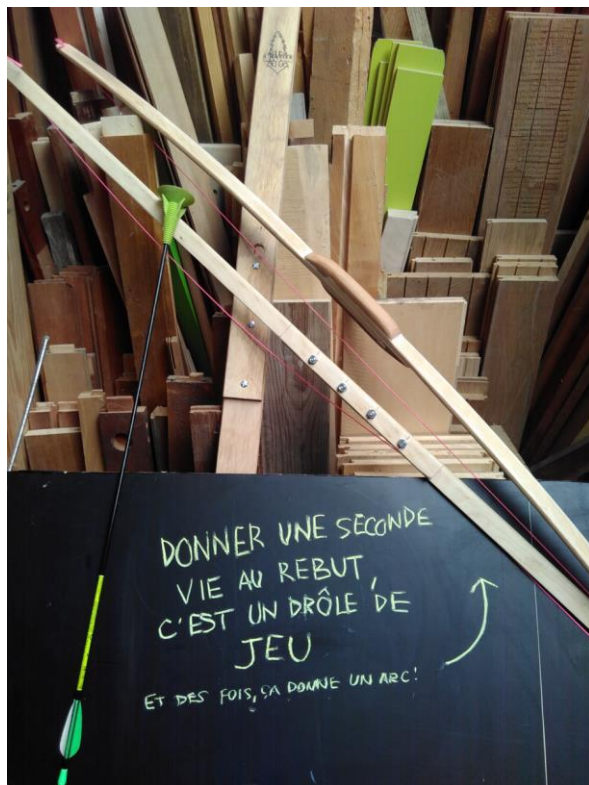 DONNER UNE SECONDE
VIE AU REBUT,
C'EST UN DRÔLE DE
JEU
ET DES FOIS, ÇA DONNE UN ARC!